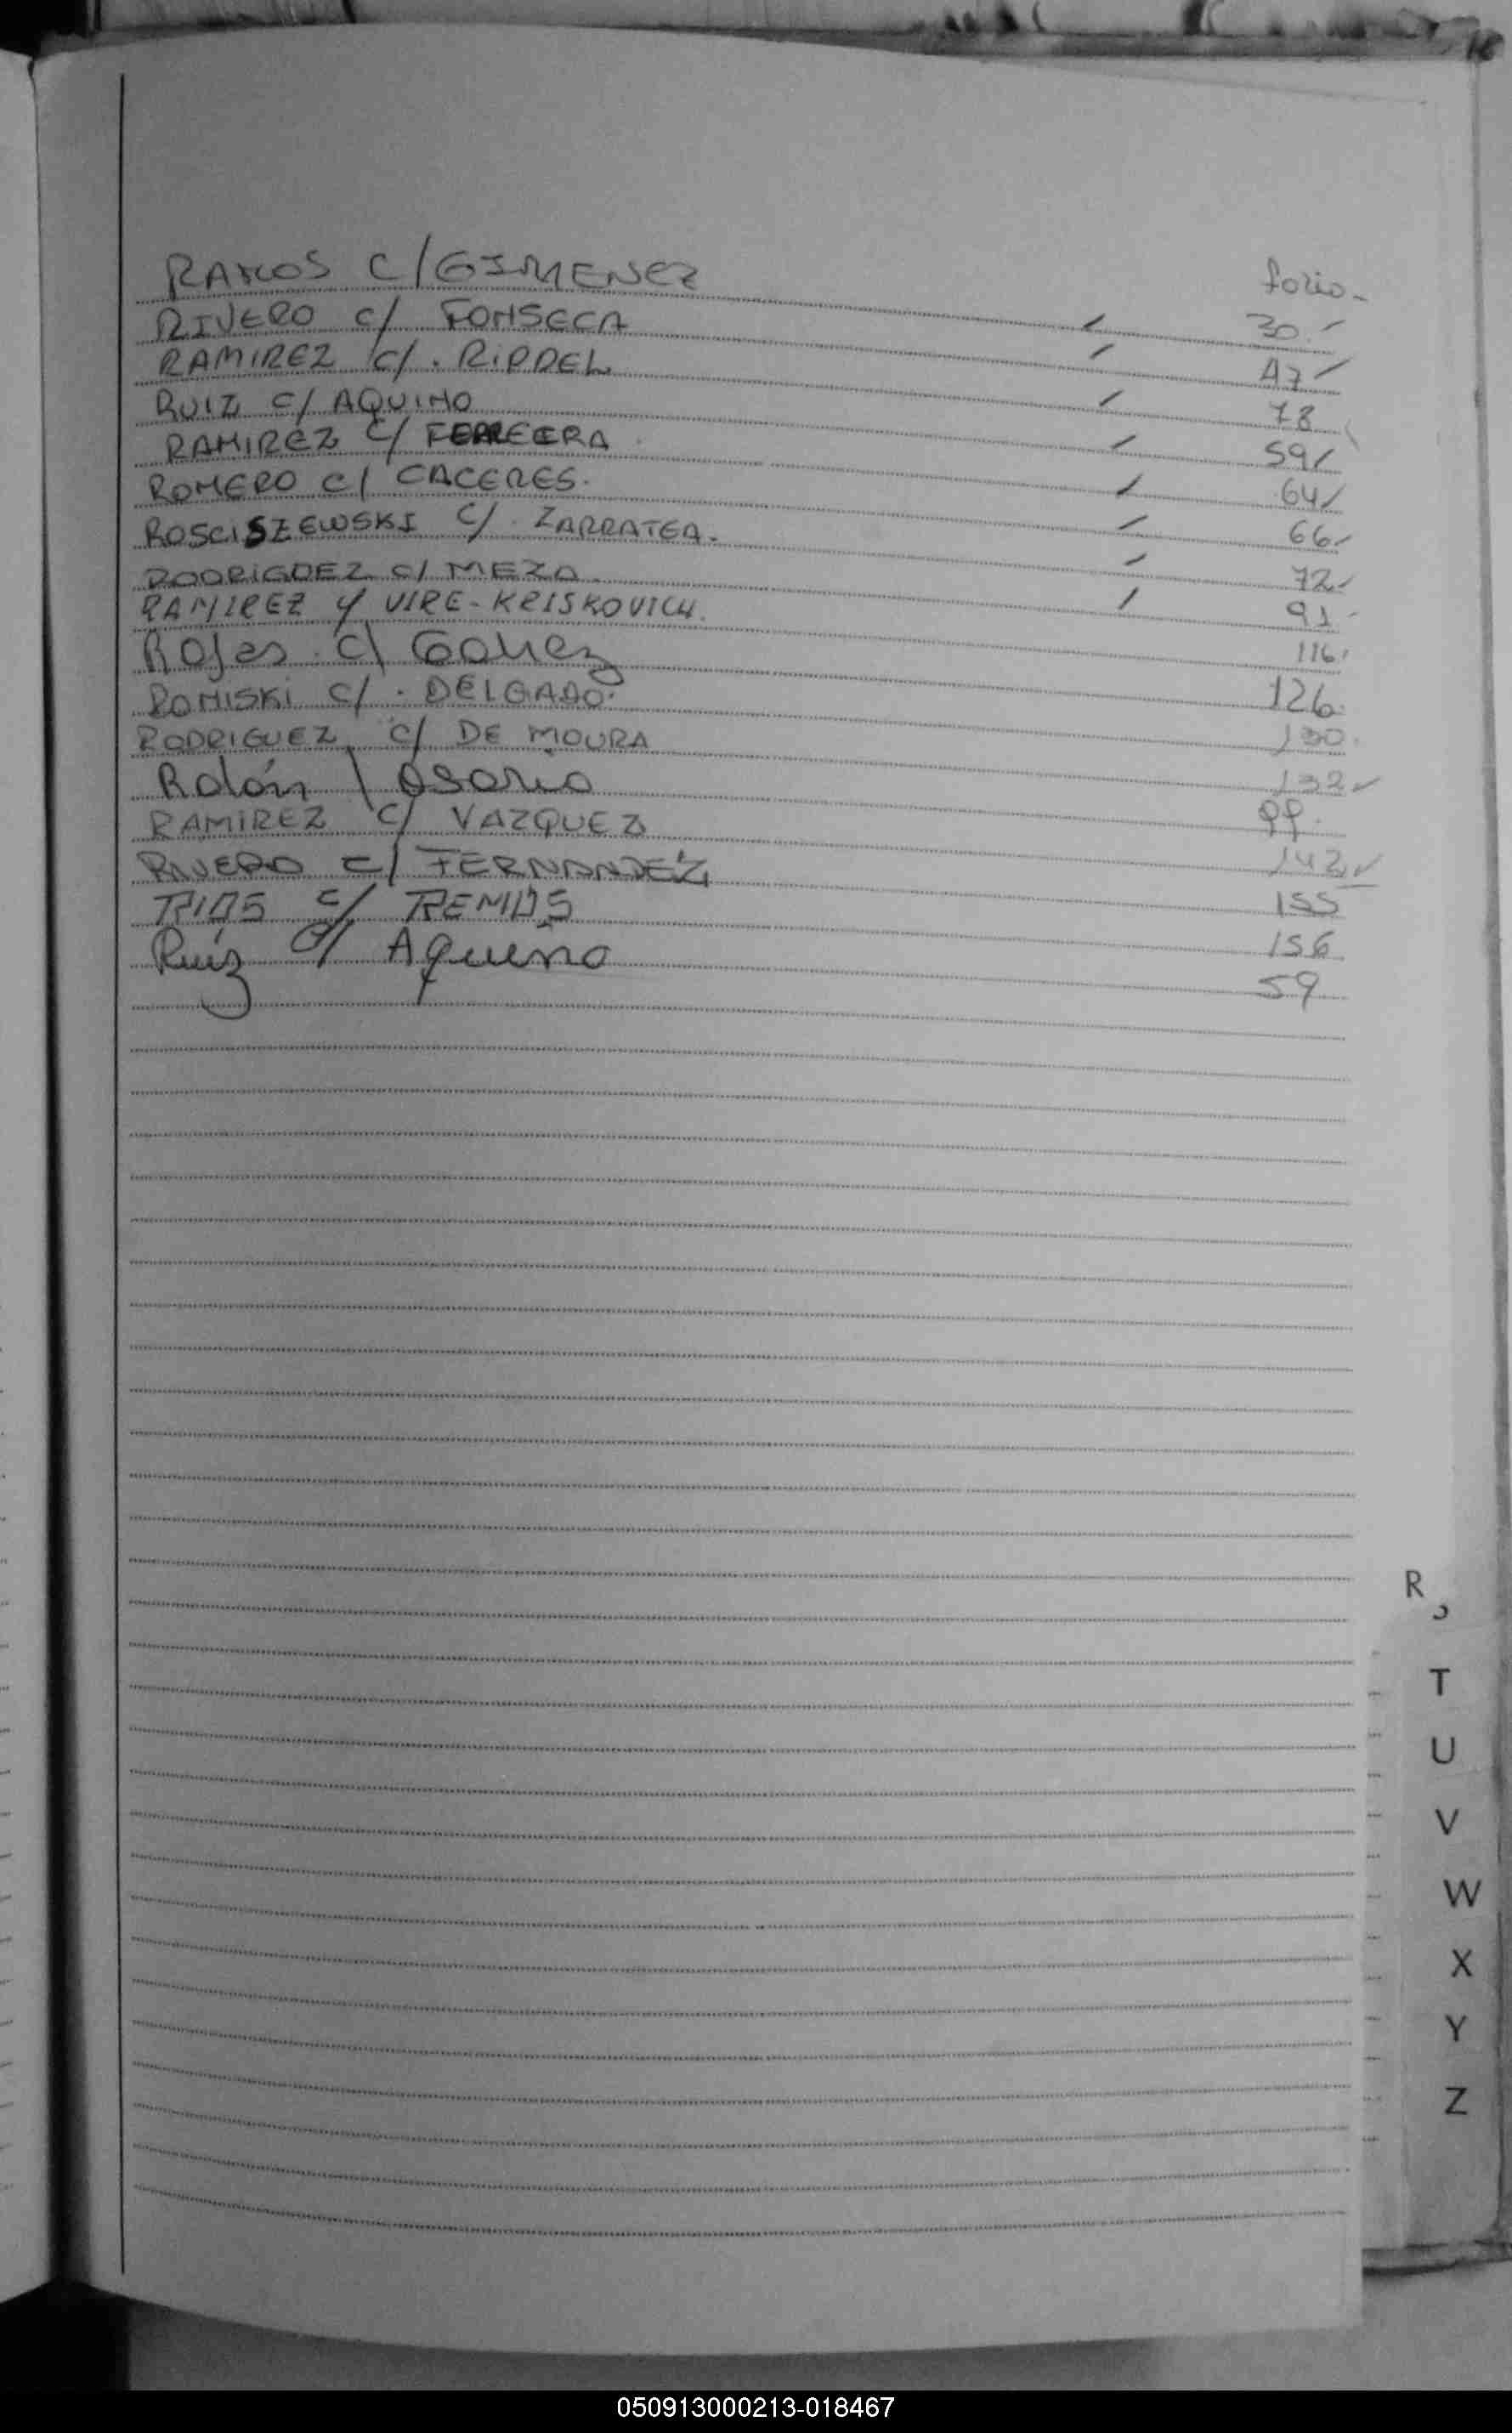 folio-
RAMOS C/GIMENEZ 30
RIVERO c/ FONSECA 47
RAMIREZ c/. RIPPEL 78
RUIZ c/ AQUINO 59
RAMIREZ c/ FERREIRA 64
ROMERO c/ CACERES. 66
ROSCISZEWSKI c/. ZARRATEA. 72
RODRIGUEZ c/ MEZA 91
RAMIREZ y VIRE-KRISKOVICH. 116
Rojas c/ Gomez 126
ROMISKI c/. DELGADO. 130
RODRIGUEZ c/ DE MOURA 132
Rolón / Osorio 99
RAMIREZ c/ VAZQUEZ 142
RIVERO c/ FERNANDEZ 155
RIAS c/ 156
Ruíz c/ Aquino 59
R
S
T
U
V
W
X
Y
Z
050913000213-018467